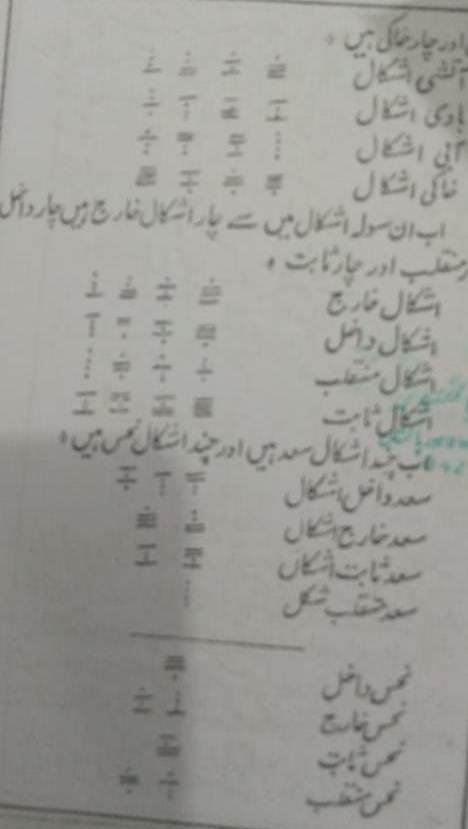 اور چار خاکی ہیں ۔
آتشی اشکال
بادی اشکال
آبی اشکال
خاکی اشکال
اب ان سولہ اشکال میں سے چار اشکال خارج ہیں چار داخل
منقلب اور چار ثابت ۔
اشکال خارج
اشکال داخل
اشکال منقلب
اشکال ثابت
اب چند اشکال سعد ہیں اور چند اشکال نحس ہیں ۔
سعد داخل اشکال
سعد خارج اشکال
سعد ثابت اشکال
سعد منقلب شکل
نحس داخل
نحس خارج
نحس ثابت
نحس منقلب